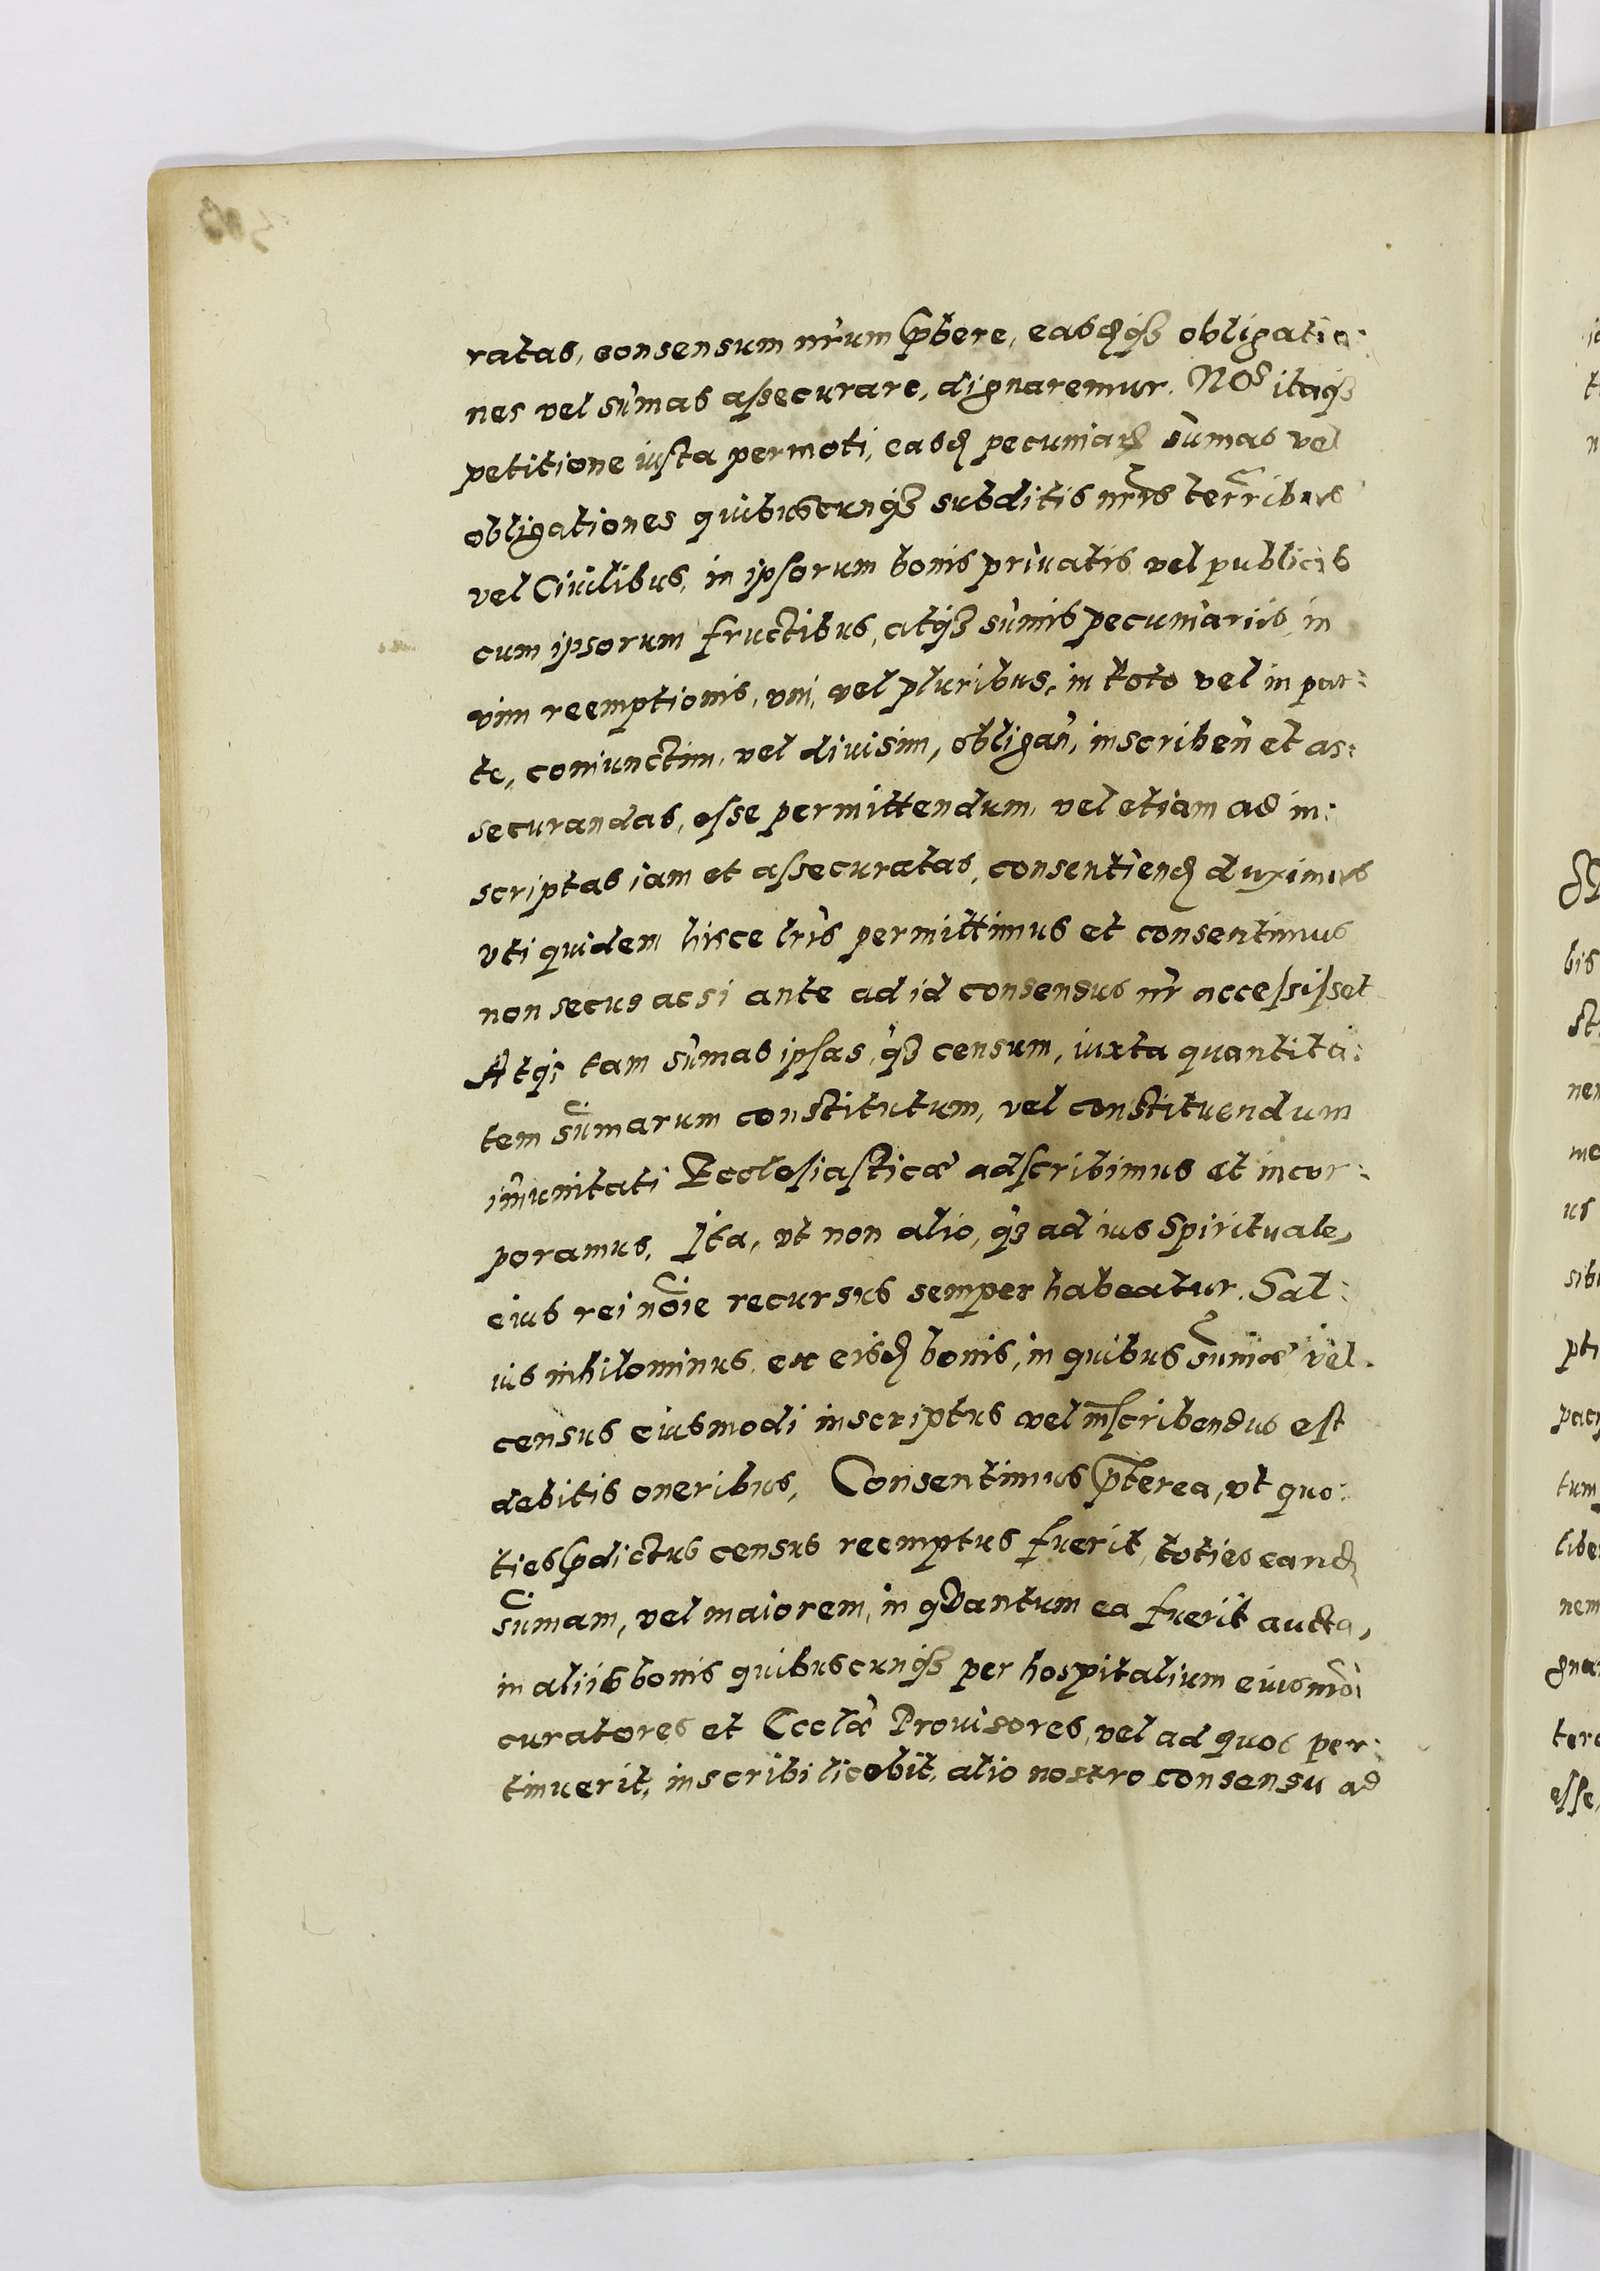 ratas, consensum nr̃um p̃bere, easdq̃ȝ obligatio:
nes vel sũmas assecurare, dignaremur. NOS itaqȝ
petitione iusta permoti, easd pecuniar sũmas vel
obligationes quibuscunqȝ subditis nr̃is terr̃ribus
vel Ciuilibus, in ipsorum bonis priuatis vel publicis
cum ipsorum fructibus, atqȝ sũmis pecuniariis, in
vim reemptionis, vni, vel pluribus, in toto vel in par:
te, coniunctim, vel diuisim, obligañ, inscribeñ et as:
securandas, esse permittendum, vel etiam ad in:
scriptas iam et assecuratas, consentiend duximus
vti quidem hisce lr̃is permittimus et consentimus
non secus ac si ante ad id consensus nr̃ accessisset
Atq; tam sũmas ipsas, q̃ȝ censum, iuxta quantita:
tem sũmarum constitutum, vel constituendum
im̃unitati Ecclesiasticæ adscribimus et incor:
poramus. Ita, vt non alio, q̃ȝ ad ius Spirituale,
eius rei nõie recursus semper habeatur. Sal:
uis nihilominus, ex eisd bonis, in quibus sum̃æ vel
census eiusmodi inscriptus vel inscribendus est
debitis oneribus. Consentimus p̃terea, vt quo:
ties p̃dictus census reemptus fuerit, toties eand
sũmam, vel maiorem, in quantum ea fuerit aucta,
in aliis bonis quibuscunqȝ per hospitalium eiusmõi
curatores et Eccl̃æ Prouisores, vel ad quos per:
tinuerit, inscribi licebit, alio nostro consensu ad